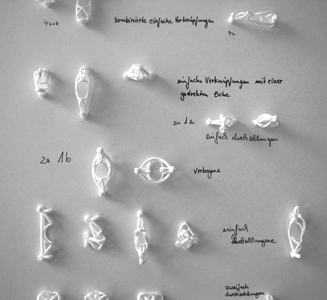 kombinierte einfache Verknüpfungen
einfache Verknüpfungen mit einer
gedrehten Ecke
zu 1a
einfach durchschlungen
zu 1b
verbogene
einfach
zweifach
durchschlungen